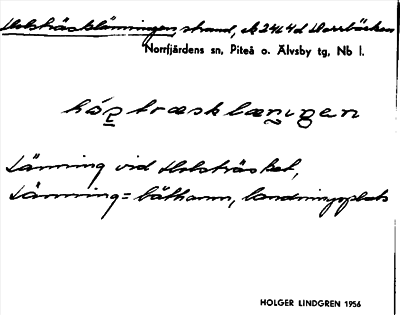 Holsträsklänningen, strand, ek 24L4d Norrbäcken
Norrfjärdens sn, Piteå o. Älvsby tg, Nb l.
Länning vid Holsträsket,
Länning = båthamn, landningsplats
HOLGER LINDGREN 1956